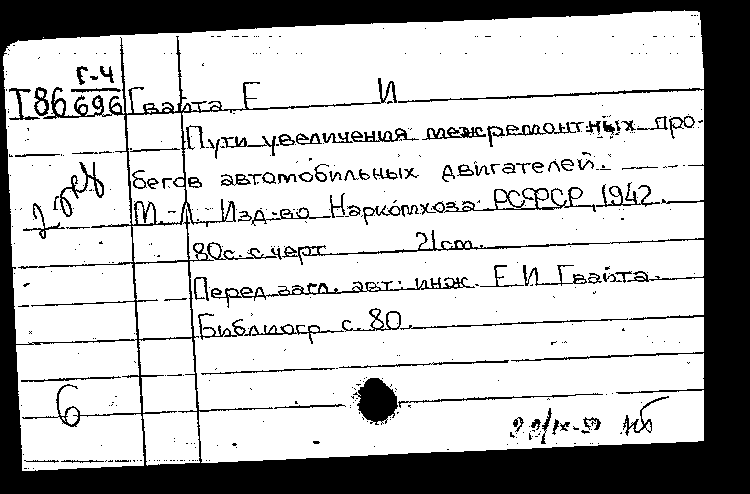 Г-4
Т86 696 Гвайта Е И
Пути увеличения межремонтных про-
бегов автомобильных двигателей.
М.-Л., Изд-во Наркомхоза РСФСР, 1942.
80с. с черт 21cm.
Перед загл. авт: инж. Е И Гвайта.
Библиогр с. 80.
2 экз
6